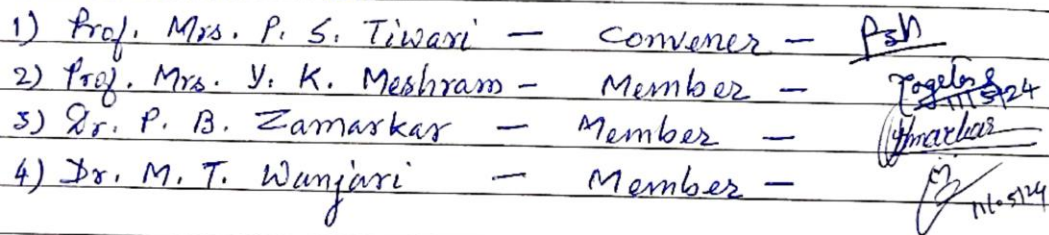 1) Prof. Mrs. P. S. Tiwari — Convener —
2) Prof. Mrs. Y. K. Meshram — Member — 11/5/24
3) Dr. P. B. Zamarkar — Member —
4) Dr. M. T. Wanjari — Member — 11/05/24